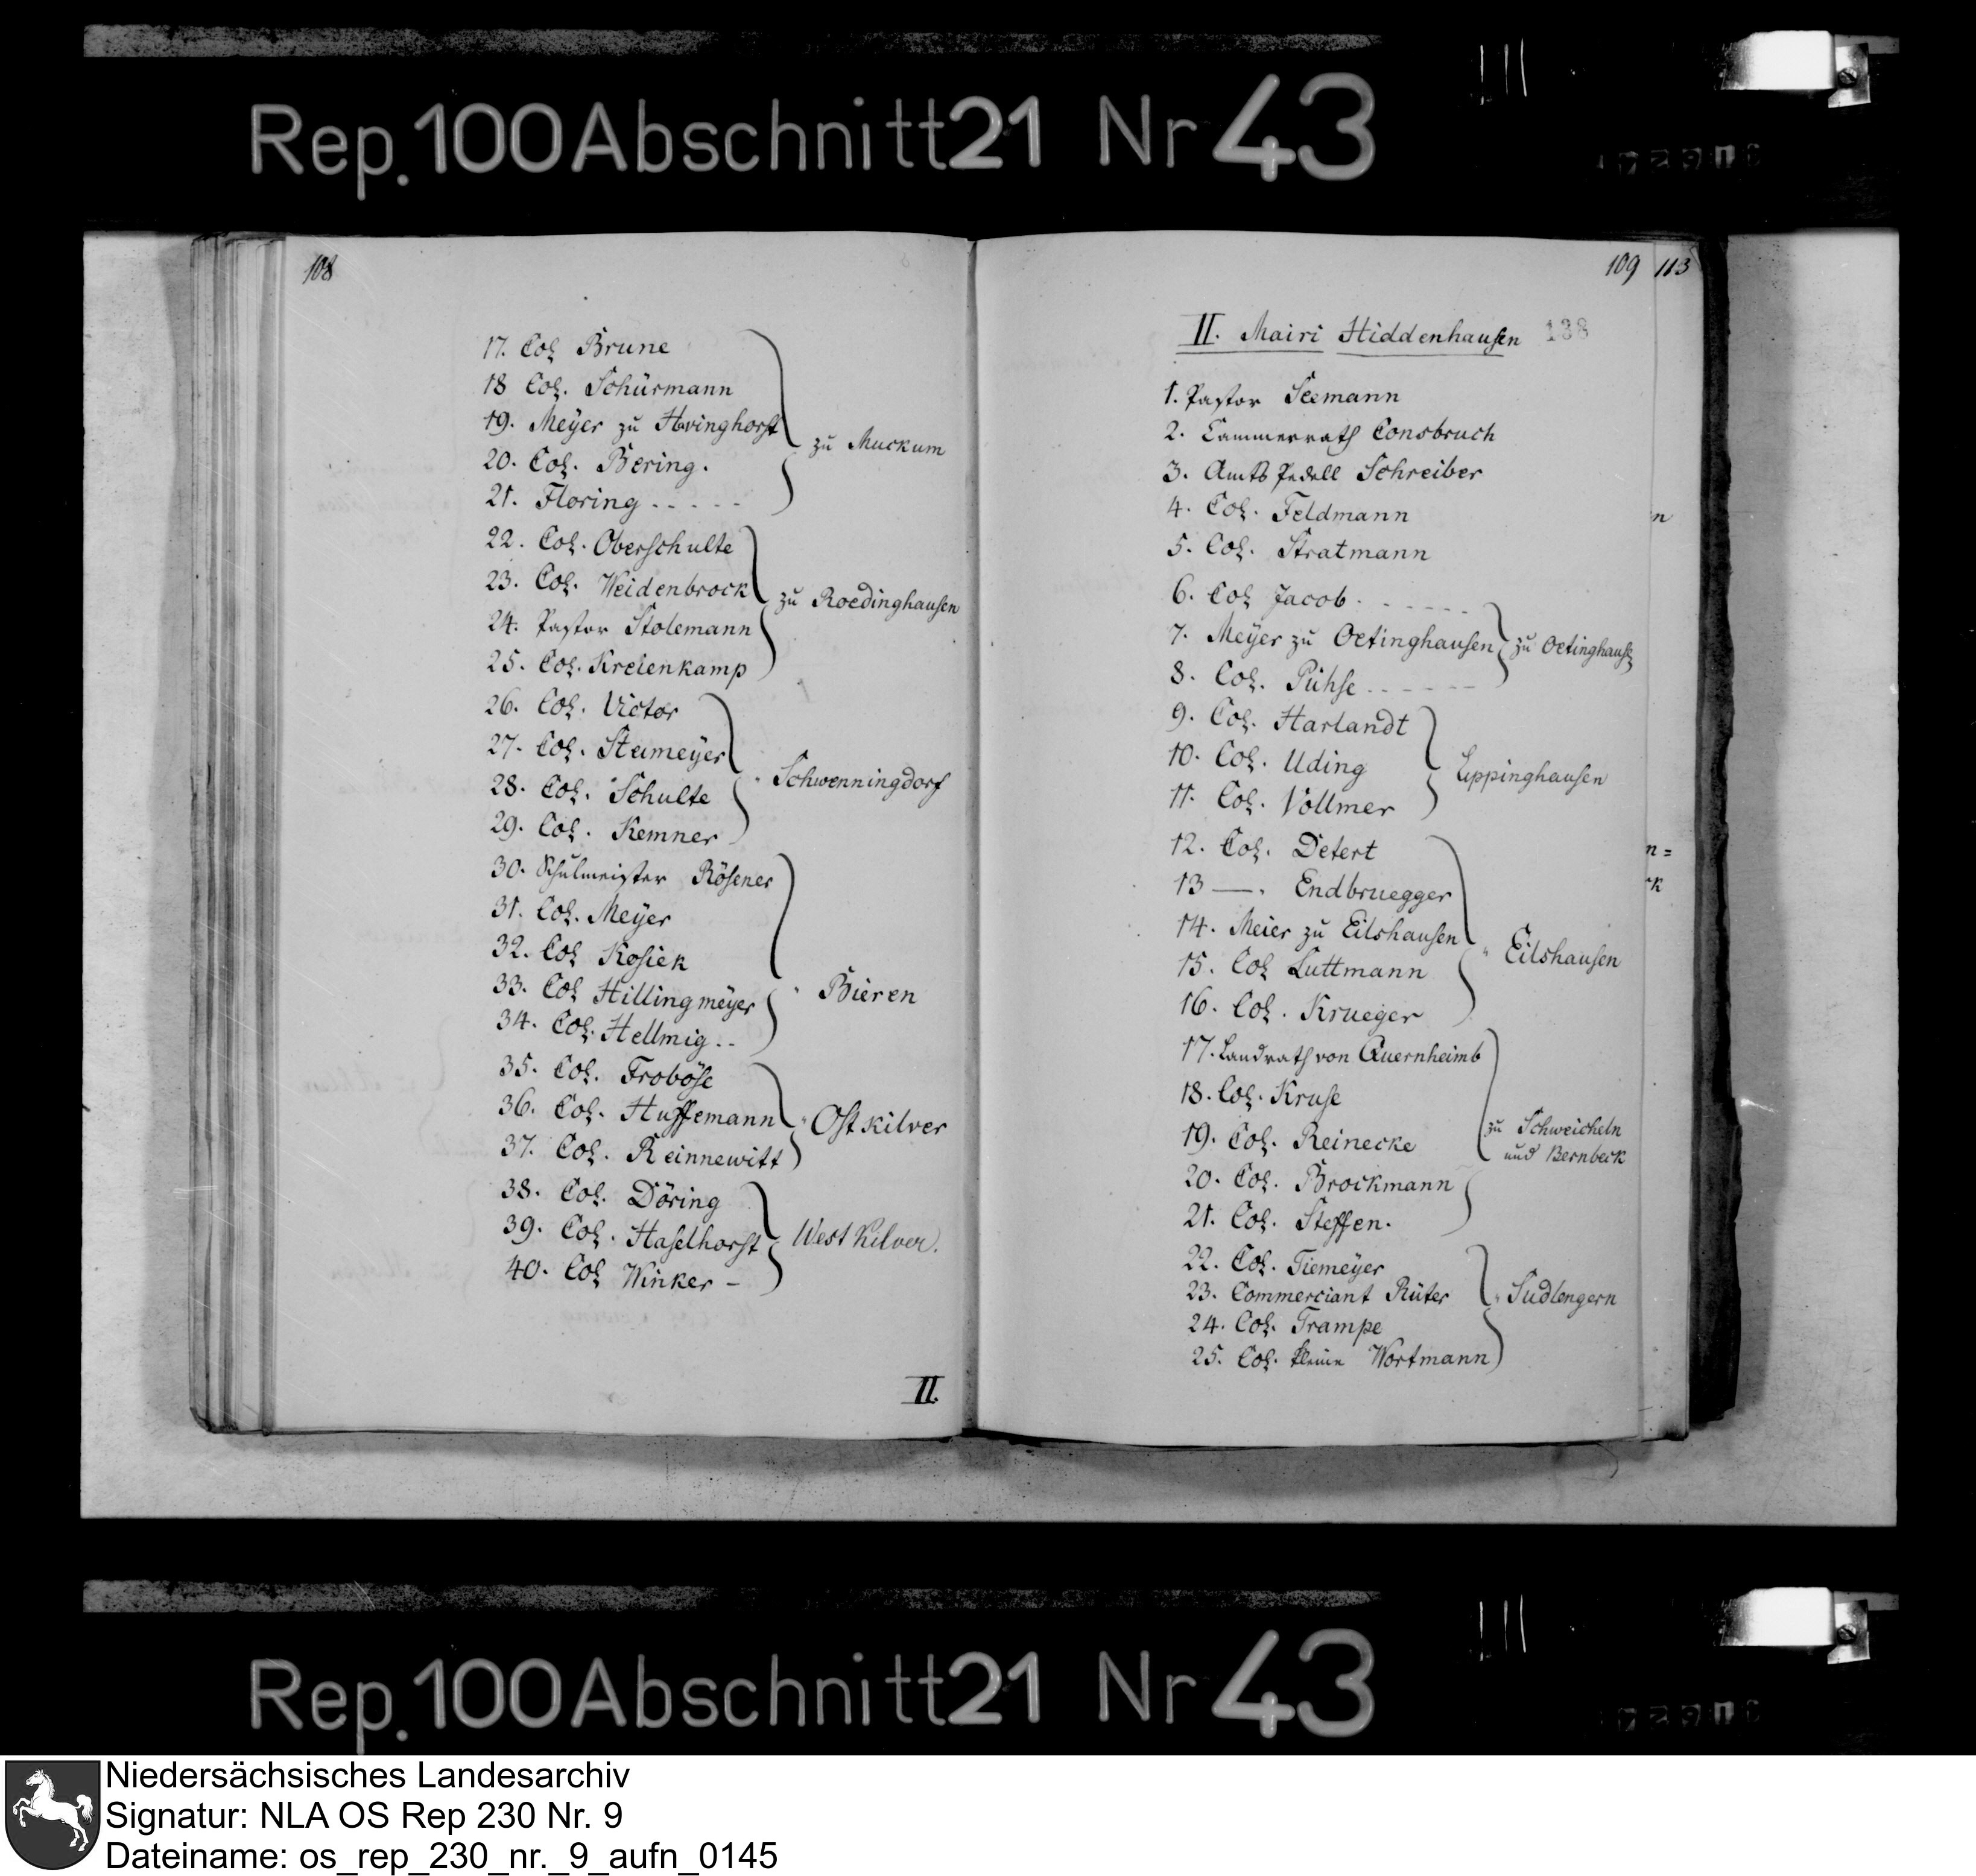 Rep.100Abschnitt21 Nr 43
108
17. Col Brune
18 Col. Schürmann
19. Meyer zu Hvinghorst
20. Col. Bering.
21. Floring . . . . .
zu Muckum
22. Col. Oberschulte
23. Col. Weidenbrock
24. Pastor Stolemann
25. Col. Kreienkamp
zu Roedinghausen
26. Col. Victor
27. Col. Steimeyer
28. Col. Schulte
29. Col. Kemner
" Schwenningdorf
30. Schulmeister Rösener
31. Col. Meyer
32. Col Kosiek
33. Col Hillingmeyer
34. Col. Hellmig . .
" Bieren
35. Col. Froböse
36. Col. Huffemann
37. Col. Reinnewitt
" Ostkilver
38. Col. Döring
39. Col. Haselhorst
40. Col Winker –
West Kilver.
II.
109 113
II. Mairi Hiddenhausen 138
1. Pastor Seemann
2. Cammerrath Consbruch
3. Amts Pedell Schreiber
4. Col. Feldmann
5. Col. Stratmann
6. Col Jacob . - - - - -
7. Meyer zu Oetinghausen
8. Col. Pühse - - - - - -
zu Oetinghausen
9. Col. Harlandt
10. Col. Uding
11. Col. Vollmer
Lippinghausen
12. Col. Detert
13 — . Endbruegger
14. Meier zu Eilshausen
15. Col Luttmann
16. Col. Krueger
" Eilshausen
17. Landrath von Quernheimb
18. Col. Kruse
19. Col. Reinecke
20. Col. Brockmann
21. Col. Steffen.
zu Schweicheln
und Bernbeck
22. Col. Tiemeyer
23. Commerciant Rüter
24. Col. Trampe
25. Col. kleine Wortmann
" Sudlengern
n
n =
rk
Rep.100Abschnitt21 Nr 43
Niedersächsisches Landesarchiv
Signatur: NLA OS Rep 230 Nr. 9
Dateiname: os_rep_230_nr._9_aufn_0145